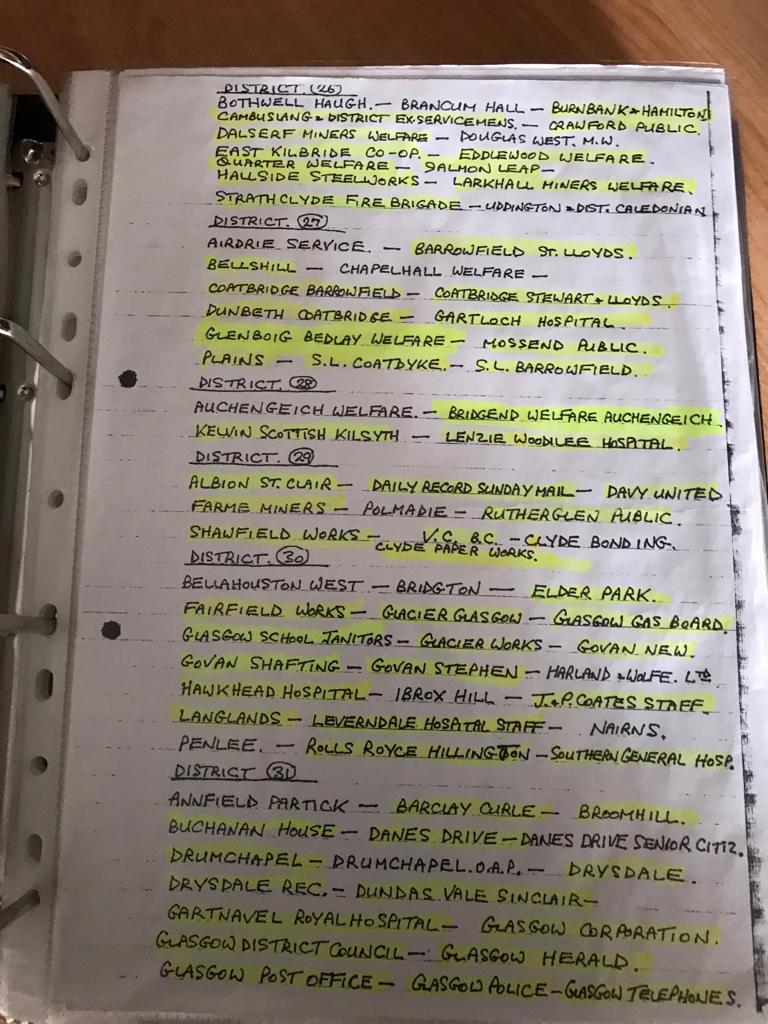 DISTRICT. (26)
BOTHWELL HAUGH. — BRANCUM HALL — BURNBANK & HAMILTON
CAMBUSLANG & DISTRICT EX-SERVICEMENS. — CRAWFORD PUBLIC.
DALSERF MINERS WELFARE — DOUGLAS WEST. M.W.
EAST KILBRIDE CO-OP. — EDDLEWOOD WELFARE.
QUARTER WELFARE — SALMON LEAP —
HALLSIDE STEELWORKS — LARKHALL MINERS WELFARE.
STRATHCLYDE FIRE BRIGADE — UDDINGTON & DIST. CALEDONIAN
DISTRICT. (27)
AIRDRIE SERVICE. — BARROWFIELD ST. LLOYDS.
BELLSHILL — CHAPELHALL WELFARE —
COATBRIDGE BARROWFIELD — COATBRIDGE STEWART & LLOYDS.
DUNBETH COATBRIDGE — GARTLOCH HOSPITAL.
GLENBOIG BEDLAY WELFARE — MOSSEND PUBLIC.
PLAINS — S.L. COATDYKE. — S.L. BARROWFIELD.
DISTRICT. (28)
AUCHENGEICH WELFARE. — BRIDGEND WELFARE AUCHENGEICH.
KELVIN SCOTTISH KILSYTH — LENZIE WOODILEE HOSPITAL.
DISTRICT. (29)
ALBION ST. CLAIR — DAILY RECORD SUNDAY MAIL — DAVY UNITED
FARME MINERS — POLMADIE — RUTHERGLEN PUBLIC.
SHAWFIELD WORKS — V.C. B.C. — CLYDE BONDING.
CLYDE PAPER WORKS.
DISTRICT. (30)
BELLAHOUSTON WEST — BRIDGTON — ELDER PARK.
FAIRFIELD WORKS — GLACIER GLASGOW — GLASGOW GAS BOARD.
GLASGOW SCHOOL JANITORS — GLACIER WORKS — GOVAN NEW.
GOVAN SHAFTING — GOVAN STEPHEN — HARLAND & WOLFE. LTD
HAWKHEAD HOSPITAL — IBROX HILL — J. & P. COATES STAFF.
LANGLANDS — LEVERNDALE HOSPITAL STAFF — NAIRNS.
PENLEE. — ROLLS ROYCE HILLINGTON — SOUTHERN GENERAL HOSP.
DISTRICT (31)
ANNFIELD PARTICK — BARCLAY CURLE — BROOMHILL.
BUCHANAN HOUSE — DANES DRIVE — DANES DRIVE SENIOR CITIZ.
DRUMCHAPEL — DRUMCHAPEL. O.A.P. — DRYSDALE.
DRYSDALE REC. — DUNDAS VALE SINCLAIR —
GARTNAVEL ROYAL HOSPITAL — GLASGOW CORPORATION.
GLASGOW DISTRICT COUNCIL — GLASGOW HERALD.
GLASGOW POST OFFICE — GLASGOW POLICE — GLASGOW TELEPHONES.